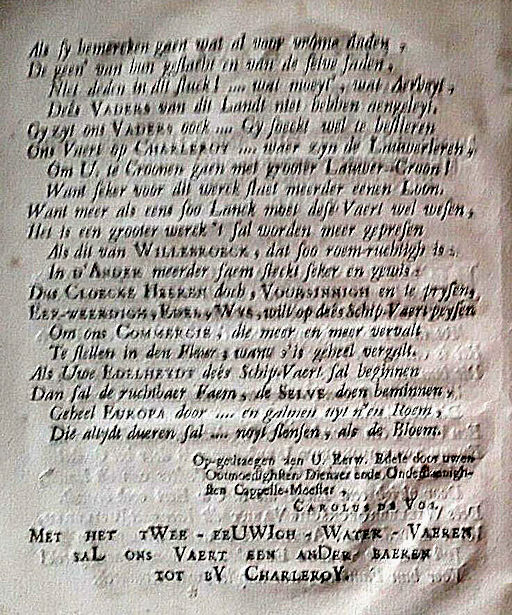 Als sy bemercken gaen wat al voor vrome daden,
De geen' van hun geslacht en van de selve saden,
Niet deden in dit stuck! .... wat moeyt', wat Arbeyt,
Dees VADERS van dit Landt niet hebben aengeleyt.
Gy zyt ons VADERS oock .... Gy soeckt wel te bestieren
Ons Vaert op CHARLEROY .... waer zyn de Lauwerieren,
Om U, te Croonen gaen met grooter Lauwer-Croon!
Want seker voor dit werck staet meerder eenen Loon.
Want meer als eens soo Lanck moet dese Vaert wel wesen,
Het is een grooter werck 't sal worden meer gepresen
Als dit van WILLEBROECK, dat soo roem-ruchtigh is:
In d'ANDER meerder faem steckt seker en gewis:
Dus CLOECKE HEEREN doch, VOORSINNIGH en te prysen,
EER-WEERDIGH, EDEL, WYS, wilt op deès Schip-Vaert peysen
Om ons COMMERCIE, die meer en meer vervalt
Te stellen in den Fleur, want s'is geheel vergalt.
Als Uwe EDELHEYDT deès Schip-Vaert sal beginnen
Dan sal de ruchtbaer Faem, de SELVE doen beminnen,
Geheel EUROPA door .... en galmen uyt n'en Roem,
Die altydt dueren sal .... noyt slensen, als de Bloem.
Op-gedraegen aen U. Eerw. Edele door uwen
Ootmoedighsten Dienaer ende Onderdaenigh-
sten Cappelle-Meester,
CAROLUS DE VOS.
MET HET tWEE-EEUWIgh-WATER-VAEREN,
saL ons VAERT EEN anDER BAEREN
TOT BY CHARLEROY.